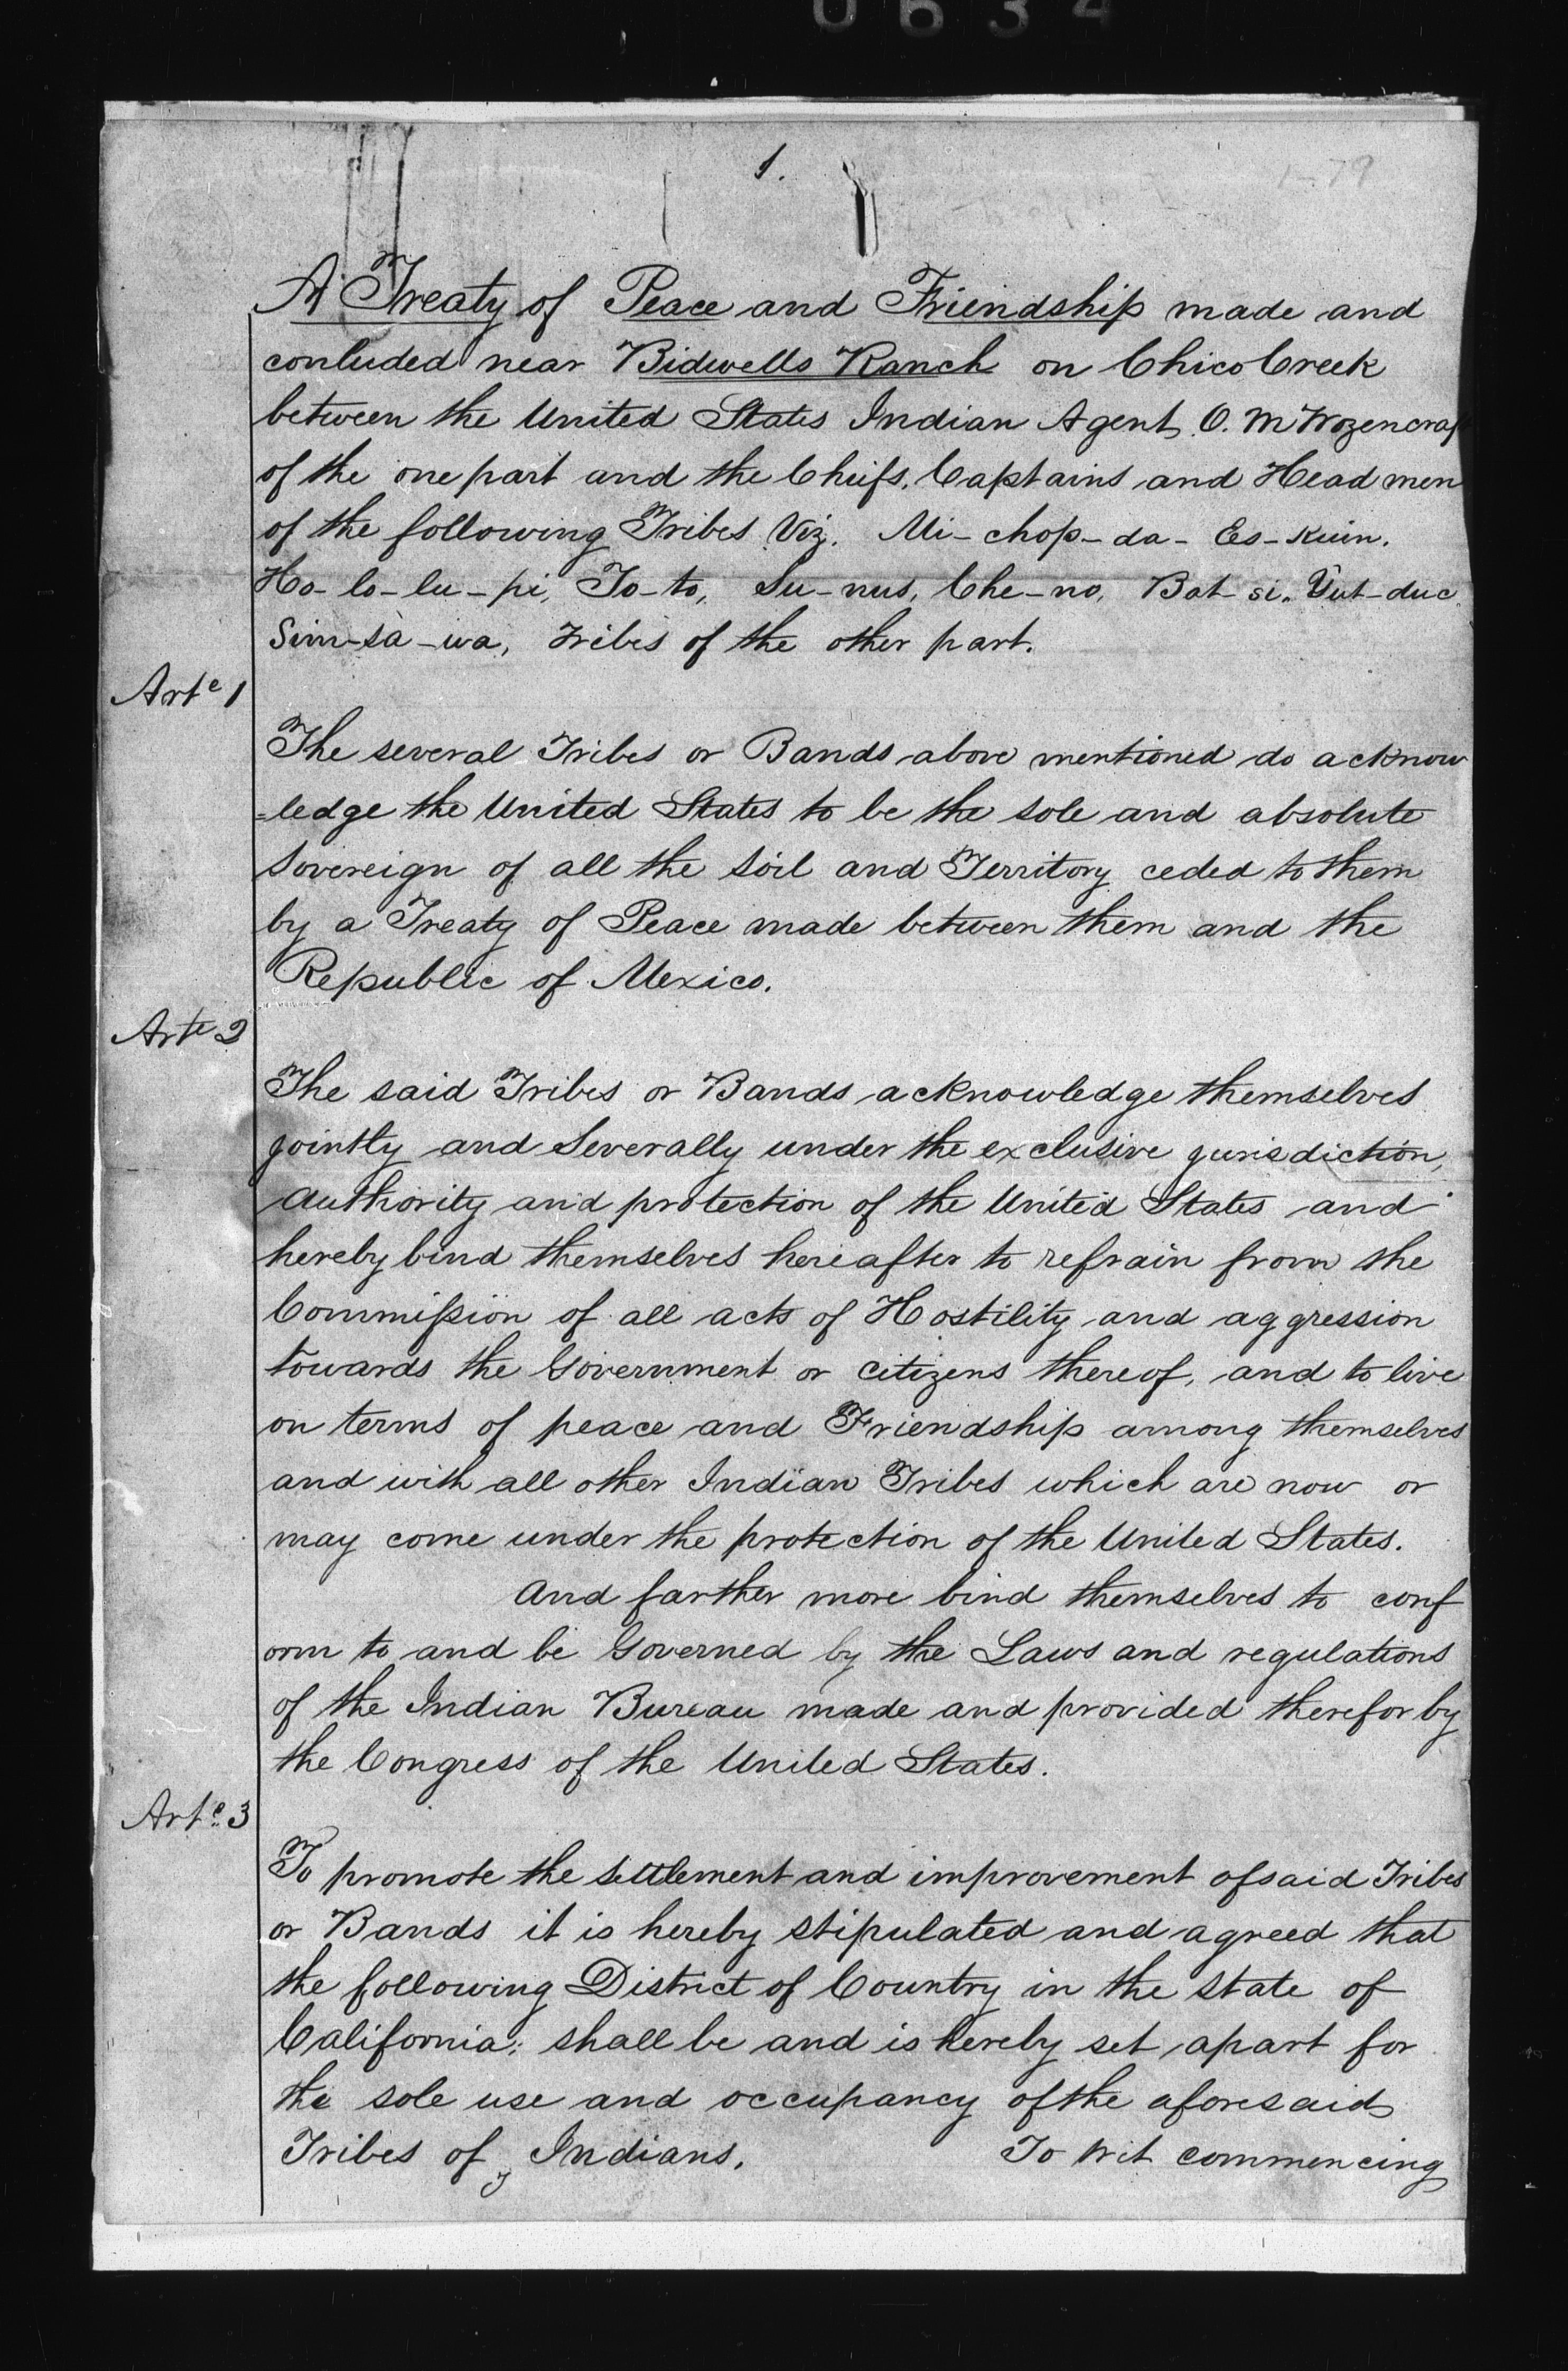 0634
1.
1-79
A Treaty of Peace and Friendship made and
conluded near Bidwells Ranch on Chico Creek
between the United States Indian Agent, O. M Wozencraf
of the one part and the Chiefs, Captains and Head men
of the following Tribes Viz. Mi-chop-da- Es-Kuin.
Ho-lo-lu-pi, To-to, Su-nus, Che-no, Bat-si, Yut-duc
Sim-sa-wa, Tribes of the other part.
Arte 1
The several Tribes or Bands above mentioned do acknow
=ledge the United States to be the sole and absolute
Sovereign of all the Soil and Territory ceded to them
by a Treaty of Peace made between them and the
Republic of Mexico.
Arte 2
The said Tribes or Bands acknowledge themselves
jointly and Severally under the exclusive jurisdiction,
authority and protection of the United States and
hereby bind themselves hereafter to refrain from the
Commission of all acts of Hostility and aggression
towards the Government or citizens thereof, and to live
on terms of peace and Friendship among themselves
and with all other Indian Tribes which are now or
may come under the protection of the United States.
And farther more bind themselves to conf
orm to and be Governed by the Laws and regulations
of the Indian Bureau made and provided therefor by
the Congress of the United States.
Arte 3
To promote the Settlement and improvement of said Tribes
or Bands it is hereby stipulated and agreed that
the following District of Country in the State of
California; shall be and is hereby set apart for
the sole use and occupancy of the aforesaid
Tribes of Indians. To Wit commencing